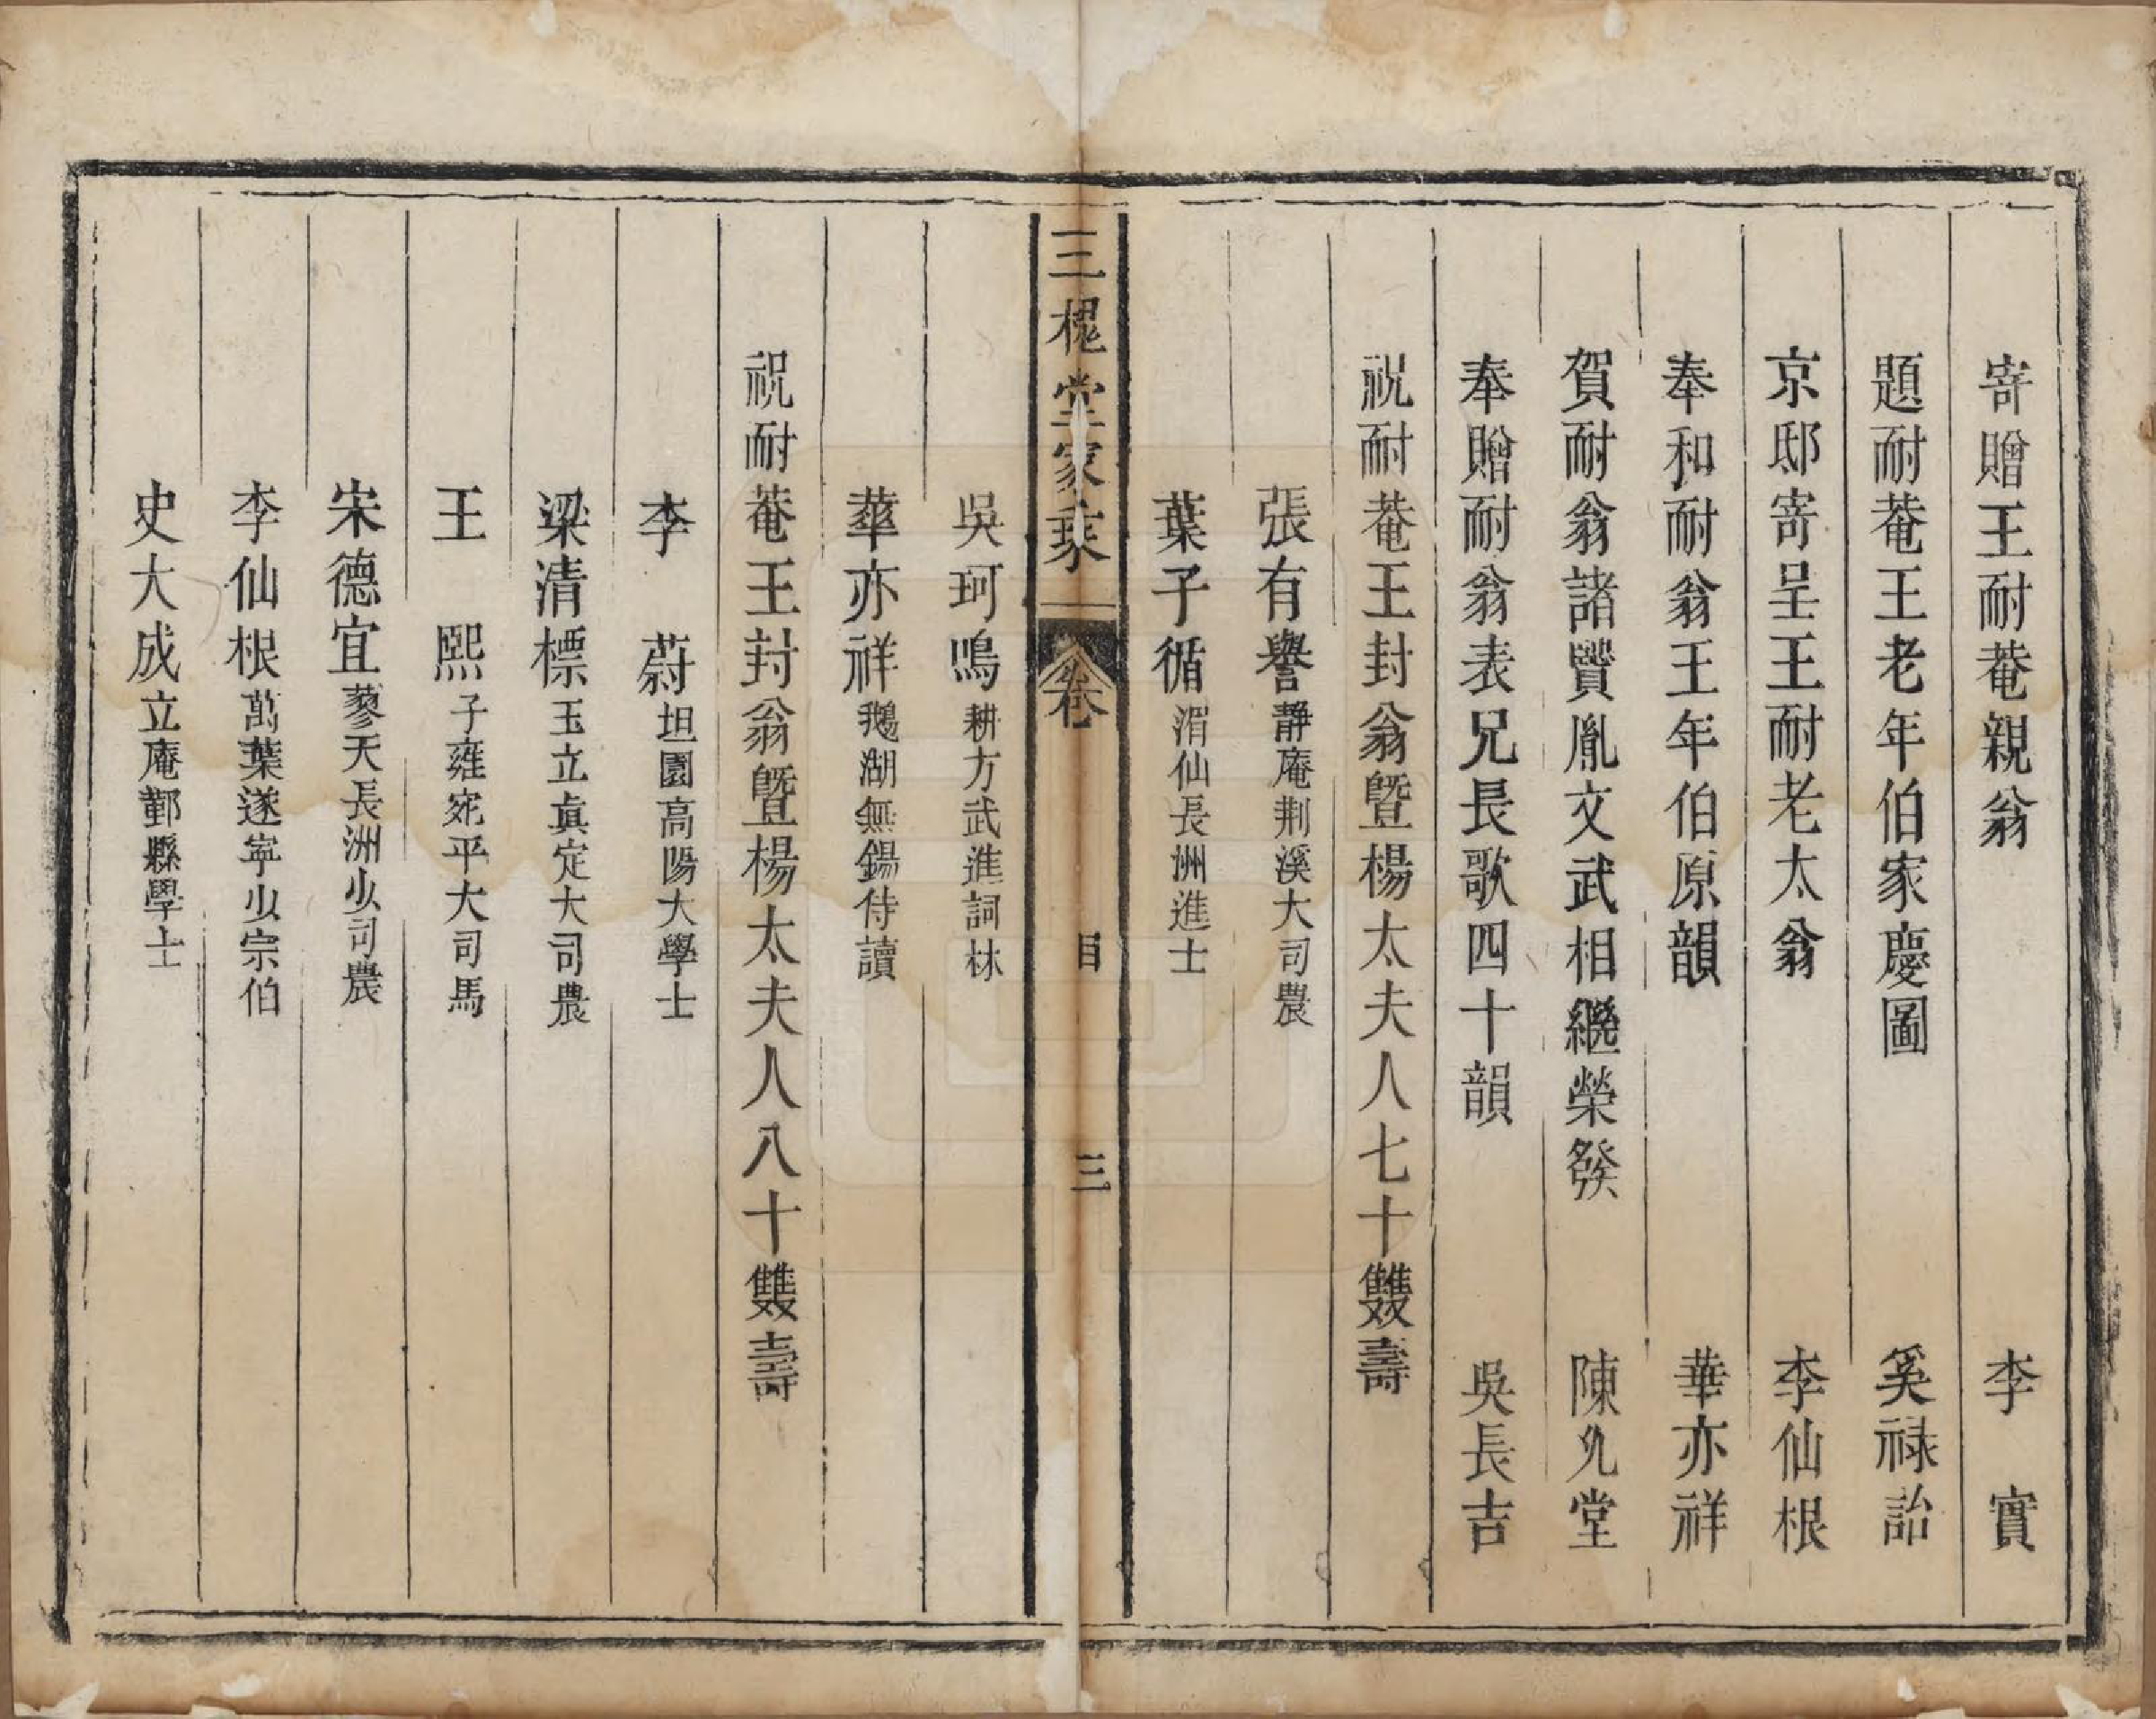 寄贈王耐菴親翁 李 實
題耐菴王老年伯家慶圖 奚祿詒
京邸寄呈王耐老太翁 李仙根
奉和耐翁王年伯原韻 華亦祥
賀耐翁諸賢胤文武相繼榮發 陳允堂
奉贈耐翁表兄長歌四十韻 吳長吉
祝耐菴王封翁暨楊太夫人七十雙壽
張有譽靜庵荆溪大司農
葉子循湄仙長洲進士
三槐堂家 卷 目 三
吳珂鳴耕方武進詞林
華亦祥鵝湖無錫侍讀
祝耐菴王封翁暨楊太夫人八十雙壽
李 蔚坦園高陽大學士
梁清標玉立眞定大司農
王 熙子雍宛平大司馬
宋德宜蓼天長洲少司農
李仙根萬葉遂寧少宗伯
史大成立庵鄞縣學士